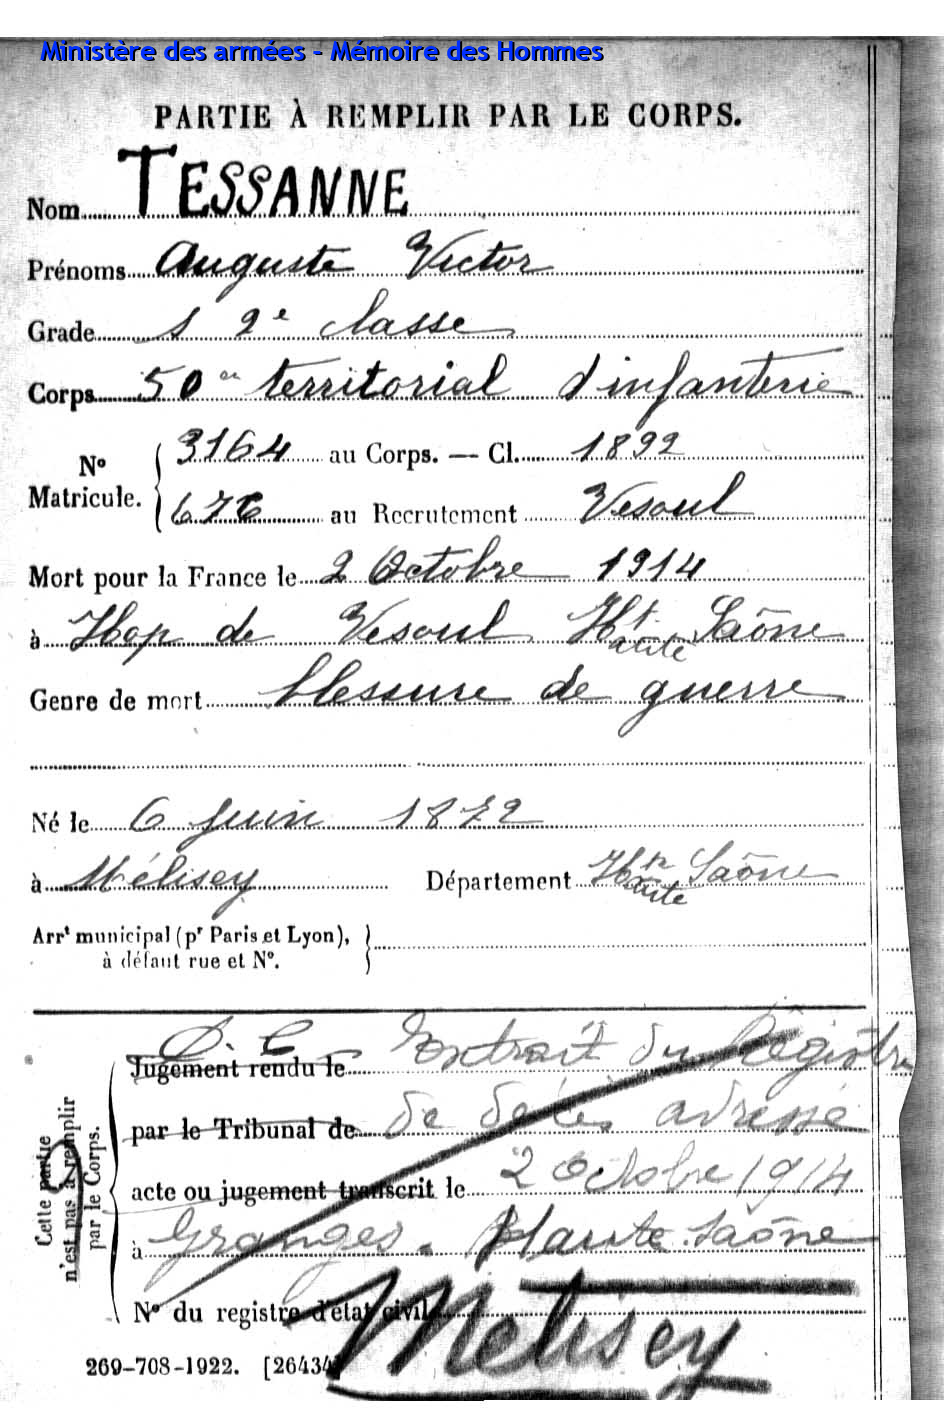 Ministère des armées - Mémoire des Hommes
PARTIE À REMPLIR PAR LE CORPS.
Nom TESSANNE
Prénoms Auguste Victor
Grade S 2e classe
Corps 50e territorial d'infanterie
No Matricule. 3164 au Corps. — Cl. 1892
676 au Recrutement Vesoul
Mort pour la France le 2 Octobre 1914
à Hop de Vesoul Hte Saône
Haute
Genre de mort blessure de guerre
Né le 6 Juin 1872
à Mélisey Département Hte Saône
Haute
Arrt municipal (pr Paris et Lyon),
à défaut rue et No.
D. C. Extrait du Régistre
Jugement rendu le
par le Tribunal de de décès adressé
acte ou jugement transcrit le 2 Octobre 1914
à Granges. Haute Saône
No du registre d'état civil
Melisey
Cette partie n'est pas à remplir par le Corps.
269-708-1922. [26434